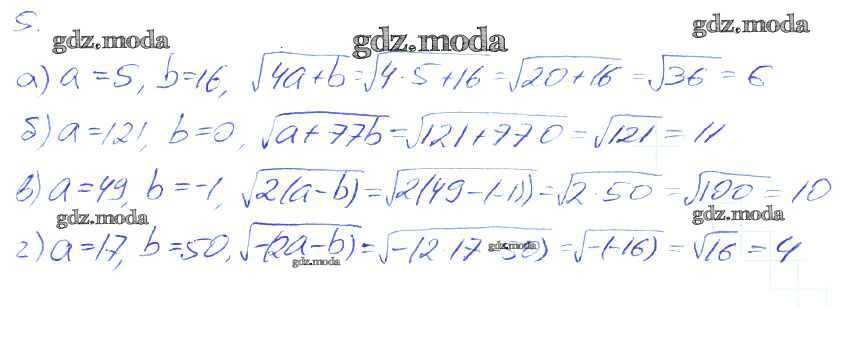 5.
gdz.moda gdz.moda gdz.moda
а) a=5, b=16, √4a+b=√4·5+16=√20+16=√36=6
б) a=121, b=0, √a+77b=√121+77·0=√121=11
в) a=49, b=-1, √2(a-b)=√2(49-(-1))=√2·50=√100=10
gdz.moda gdz.moda
г) a=17, b=50, √-(2a-b)=√-(2·17-50)=√-(-16)=√16=4
gdz.moda gdz.moda